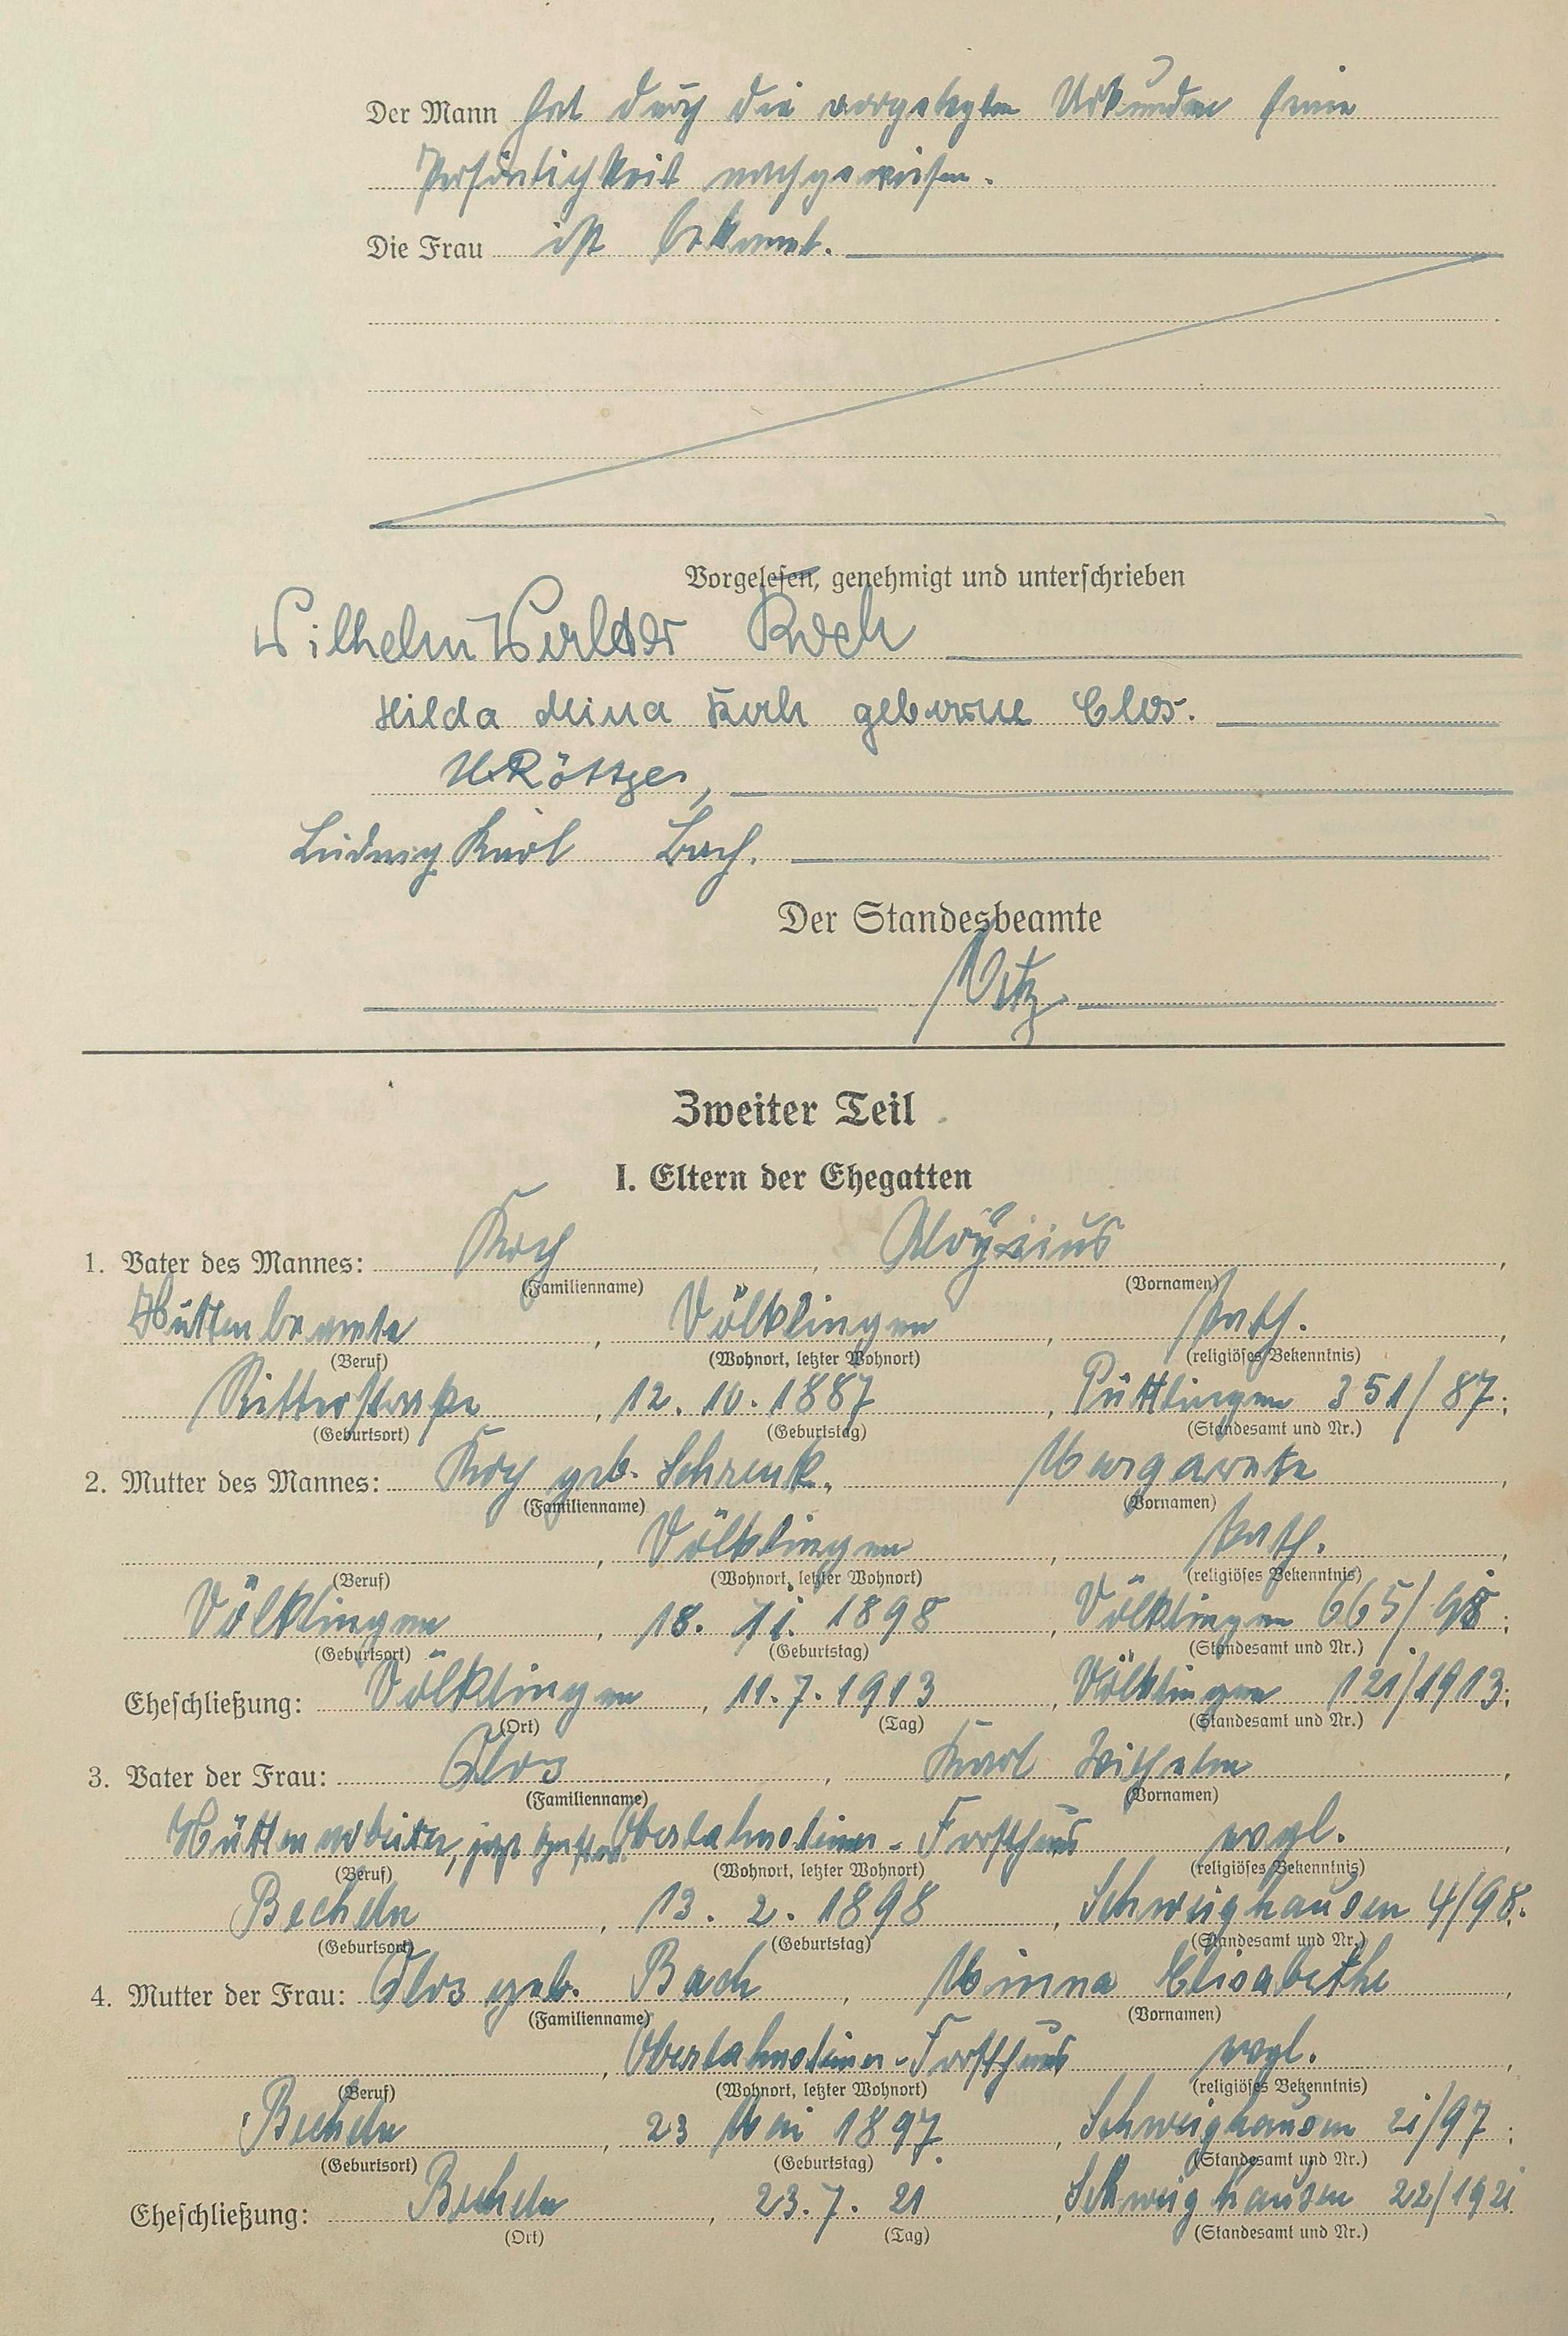 Der Mann hat durch die vorgelegten Urkunden seine
Persönlichkeit nachgewiesen.
Die Frau ist bekannt.
Vorgelesen, genehmigt und unterschrieben
Wilhelm Walter Koch
Hilda Mina Koch geborne Clos.
Röttger,
Ludwig Karl Bach.
Der Standesbeamte
Zweiter Teil
I. Eltern der Ehegatten
1. Vater des Mannes: Koch, Aloysius,
(Familienname) (Vornamen)
Hüttenbeamte, Völklingen, kath.,
(Beruf) (Wohnort, letzter Wohnort) (religiöses Bekenntnis)
Ritterstraße, 12. 10. 1887, Püttlingen 351/87;
(Geburtsort) (Geburtstag) (Standesamt und Nr.)
2. Mutter des Mannes: Koch geb. Schrenk, Margarete,
(Familienname) (Vornamen)
, Völklingen, kath.,
(Beruf) (Wohnort, letzter Wohnort) (religiöses Bekenntnis)
Völklingen, 18. 11. 1898, Völklingen 665/98;
(Geburtsort) (Geburtstag) (Standesamt und Nr.)
Eheschließung: Völklingen, 11. 7. 1913, Völklingen 121/1913;
(Ort) (Tag) (Standesamt und Nr.)
3. Vater der Frau: Clos, Karl Wilhelm,
(Familienname) (Vornamen)
Hüttenarbeiter, jetzt Oberlahnsteiner-Forsthaus evgl.,
(Beruf) (Wohnort, letzter Wohnort) (religiöses Bekenntnis)
Becheln, 13. 2. 1898, Schweighausen 4/98.
(Geburtsort) (Geburtstag) (Standesamt und Nr.)
4. Mutter der Frau: Clos geb. Bach, Minna Elisabethe,
(Familienname) (Vornamen)
, Oberlahnsteiner-Forsthaus evgl.,
(Beruf) (Wohnort, letzter Wohnort) (religiöses Bekenntnis)
Becheln, 23 Mai 1897, Schweighausen 21/97;
(Geburtsort) (Geburtstag) (Standesamt und Nr.)
Eheschließung: Becheln, 23. 7. 21, Schweighausen 22/1921
(Ort) (Tag) (Standesamt und Nr.)